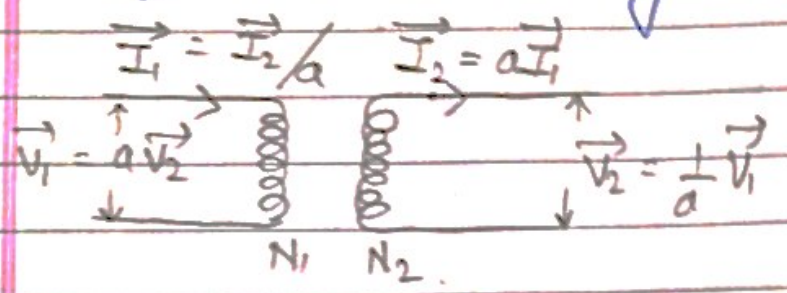 I₁ = I₂/a I₂ = aI₁
V₁ = aV₂ V₂ = 1/a V₁
N₁ N₂